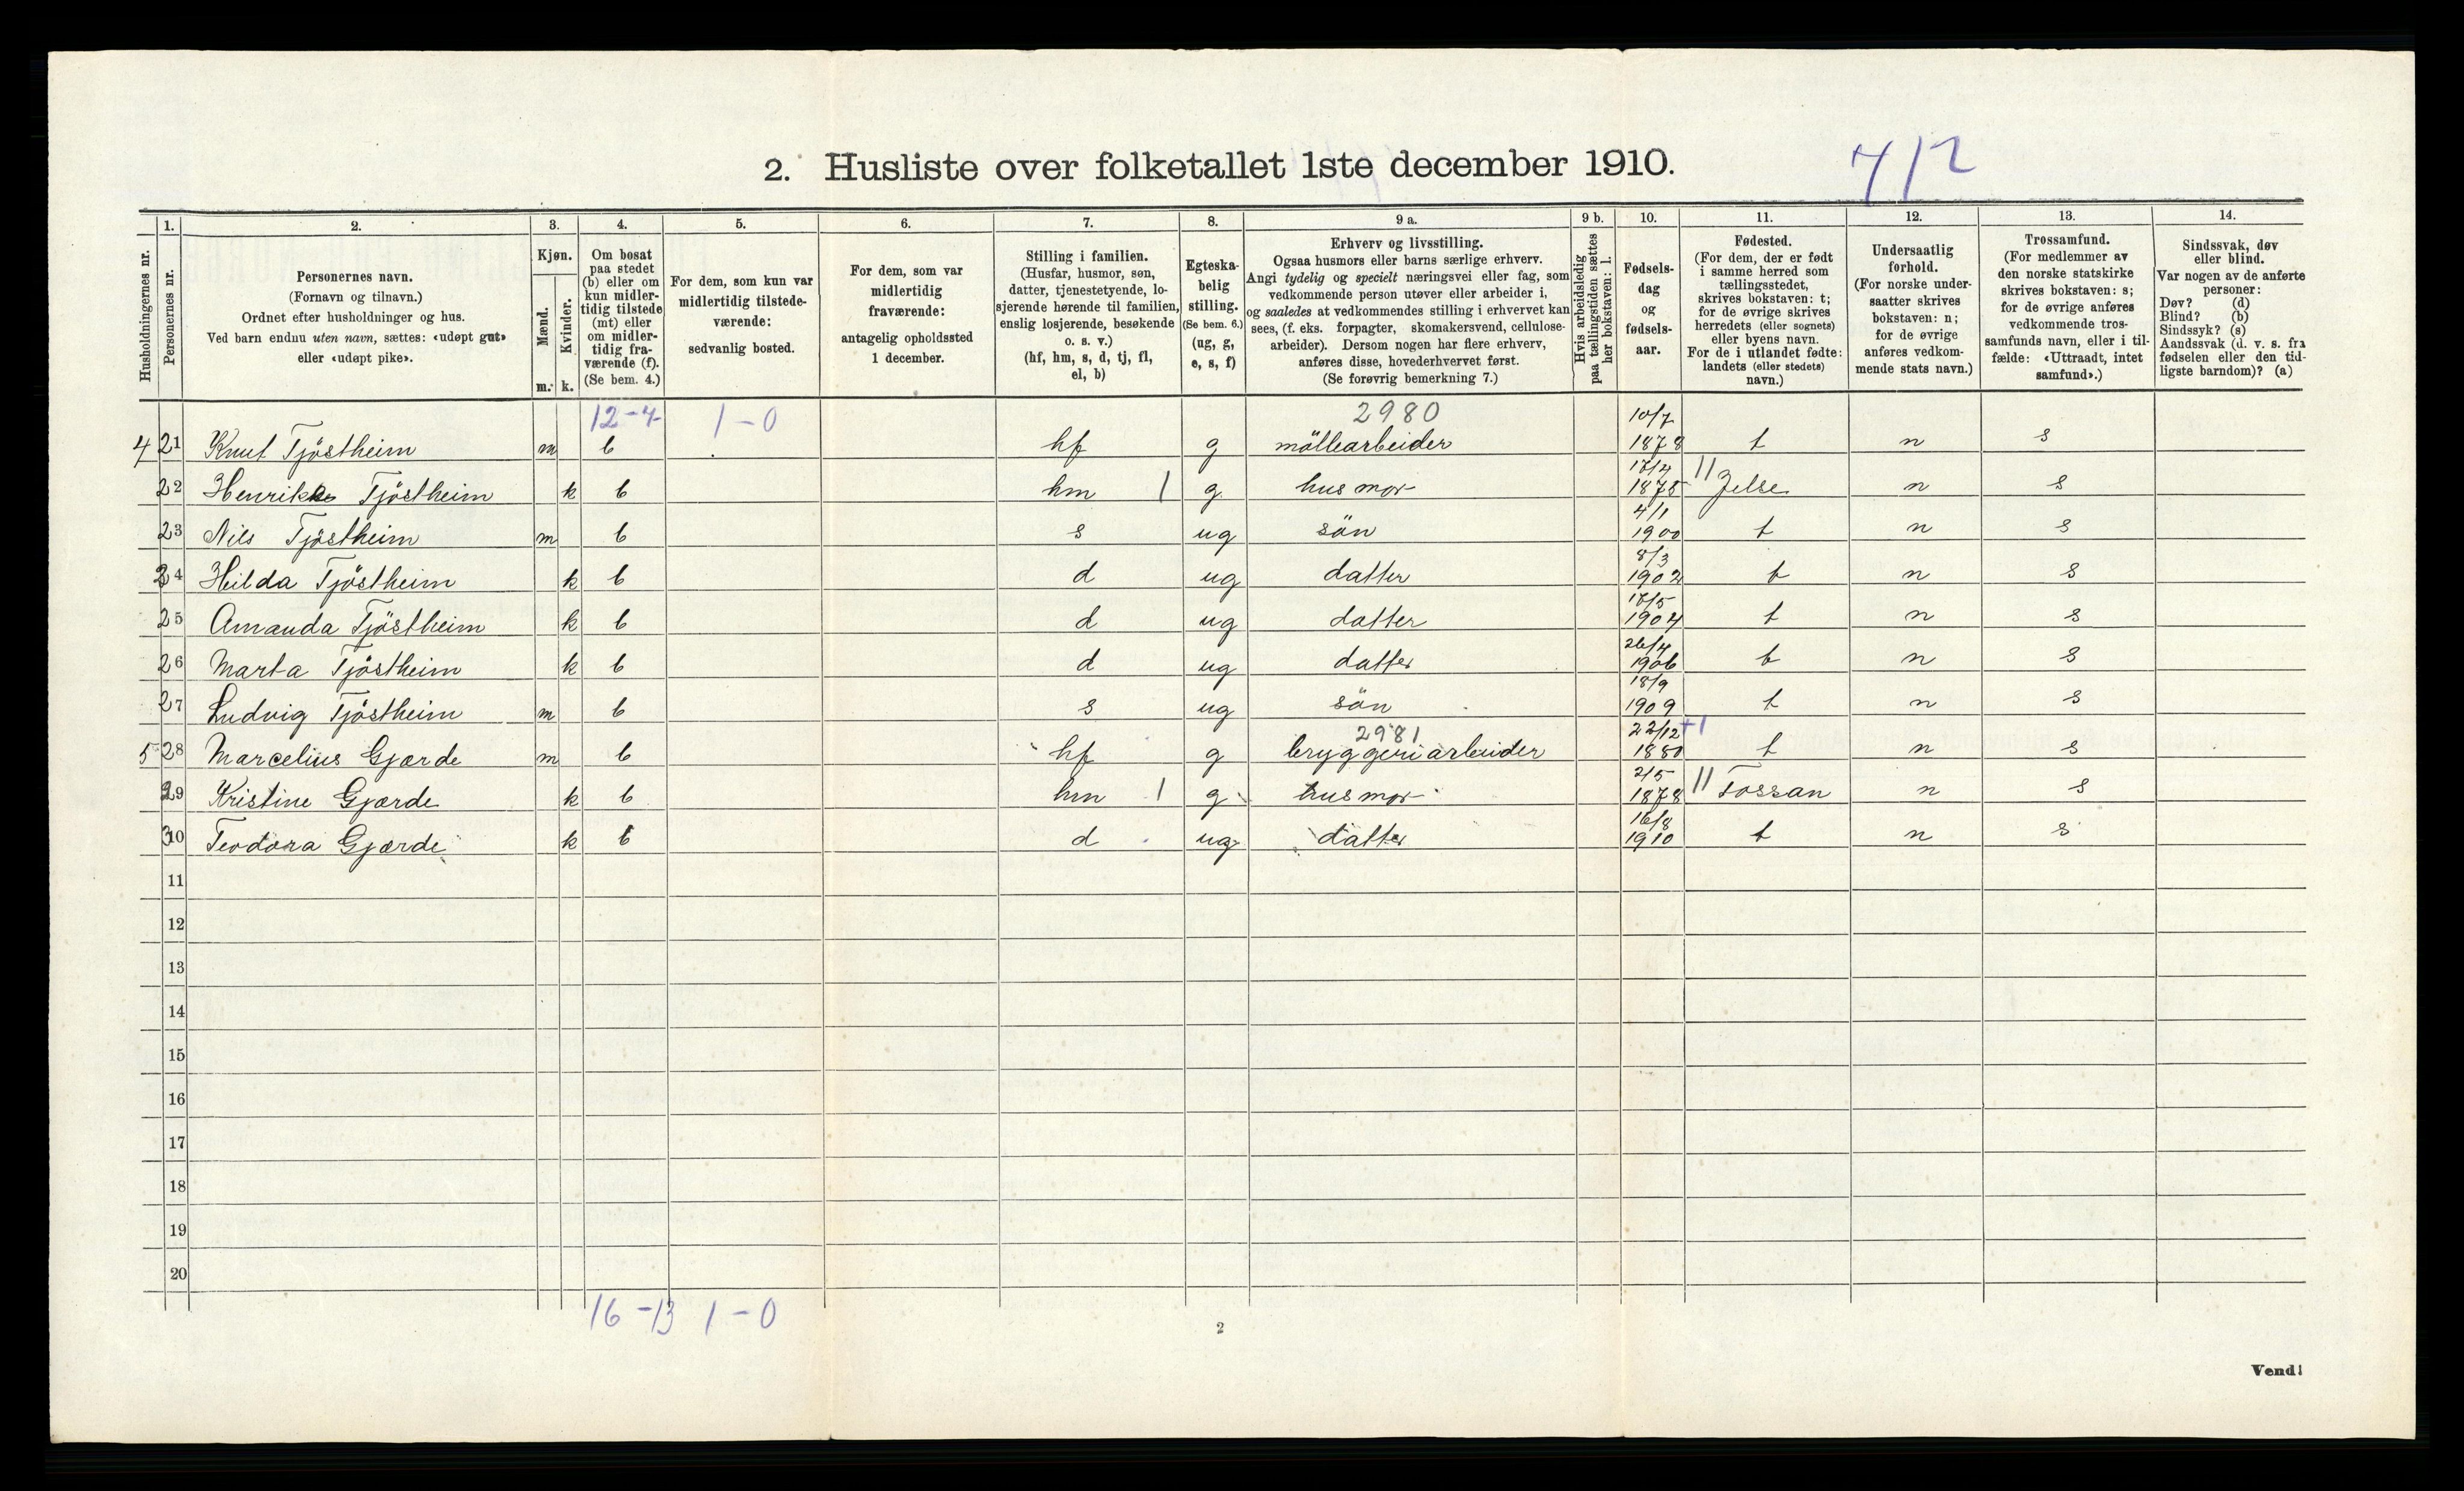 2. Husliste over folketallet 1ste december 1910.
7/2
Husholdningernes nr.
1. Personernes nr.
2. Personernes navn.
(Fornavn og tilnavn.)
Ordnet efter husholdninger og hus.
Ved barn endnu uten navn, sættes: «udøpt gut»
eller «udøpt pike».
3. Kjøn.
Mænd. m.
Kvinder. k.
4. Om bosat
paa stedet
(b) eller om
kun midler-
tidig tilstede
(mt) eller
om midler-
tidig fra-
værende (f).
(Se bem. 4.)
5. For dem, som kun var
midlertidig tilstede-
værende:
sedvanlig bosted.
6. For dem, som var
midlertidig
fraværende:
antagelig opholdssted
1 december.
7. Stilling i familien.
(Husfar, husmor, søn,
datter, tjenestetyende, lo-
sjerende hørende til familien,
enslig losjerende, besøkende
o. s. v.)
(hf, hm, s, d, tj, fl,
el, b)
8. Egteska-
belig
stilling.
(Se bem. 6.)
(ug, g,
e, s, f)
9 a. Erhverv og livsstilling.
Ogsaa husmors eller barns særlige erhverv.
Angi tydelig og specielt næringsvei eller fag, som
vedkommende person utøver eller arbeider i,
og saaledes at vedkommendes stilling i erhvervet kan
sees, (f. eks. forpagter, skomakersvend, cellulose-
arbeider). Dersom nogen har flere erhverv,
anføres disse, hovederhvervet først.
(Se forøvrig bemerkning 7.)
9 b. Hvis arbeidsledig
paa tællingstiden sættes
her bokstaven: l.
10. Fødsels-
dag
og
fødsels-
aar.
11. Fødested.
(For dem, der er født
i samme herred som
tællingsstedet,
skrives bokstaven: t;
for de øvrige skrives
herredets (eller sognets)
eller byens navn.
For de i utlandet fødte:
landets (eller stedets)
navn.)
12. Undersaatlig
forhold.
(For norske under-
saatter skrives
bokstaven: n;
for de øvrige
anføres vedkom-
mende stats navn.)
13. Trossamfund.
(For medlemmer av
den norske statskirke
skrives bokstaven: s;
for de øvrige anføres
vedkommende tros-
samfunds navn, eller i til-
fælde: «Uttraadt, intet
samfund».)
14. Sindssvak, døv
eller blind.
Var nogen av de anførte
personer:
Døv? (d)
Blind? (b)
Sindssyk? (s)
Aandssvak (d. v. s. fra
fødselen eller den tid-
ligste barndom)? (a)
12-4 1-0 2980
4 21 Knut Tjöstheim m b hf g möllearbeider 10/7 1878 t n s
22 Henrikke Tjöstheim k b hm 1 g husmor 17/4 1875 // Jelse n s
23 Nils Tjöstheim m b s ug sön 4/1 1900 t n s
24 Hilda Tjöstheim k b d ug datter 8/3 1902 t n s
25 Amanda Tjöstheim k b d ug datter 17/5 1904 t n s
26 Marta Tjöstheim k b d ug datter 26/4 1906 t n s
27 Ludvig Tjöstheim m b s ug sön 18/9 1909 t n s
2981
5 28 Marcelius Gjærde m b hf g bryggeriarbeider 22/12 +1 1880 t n s
29 Kristine Gjærde k b hm 1 g husmor 2/5 1878 // Fossan n s
30 Teodora Gjærde k b d ug datter 16/8 1910 t n s
11
12
13
14
15
16
17
18
19
20
16-13 1-0
2
Vend!